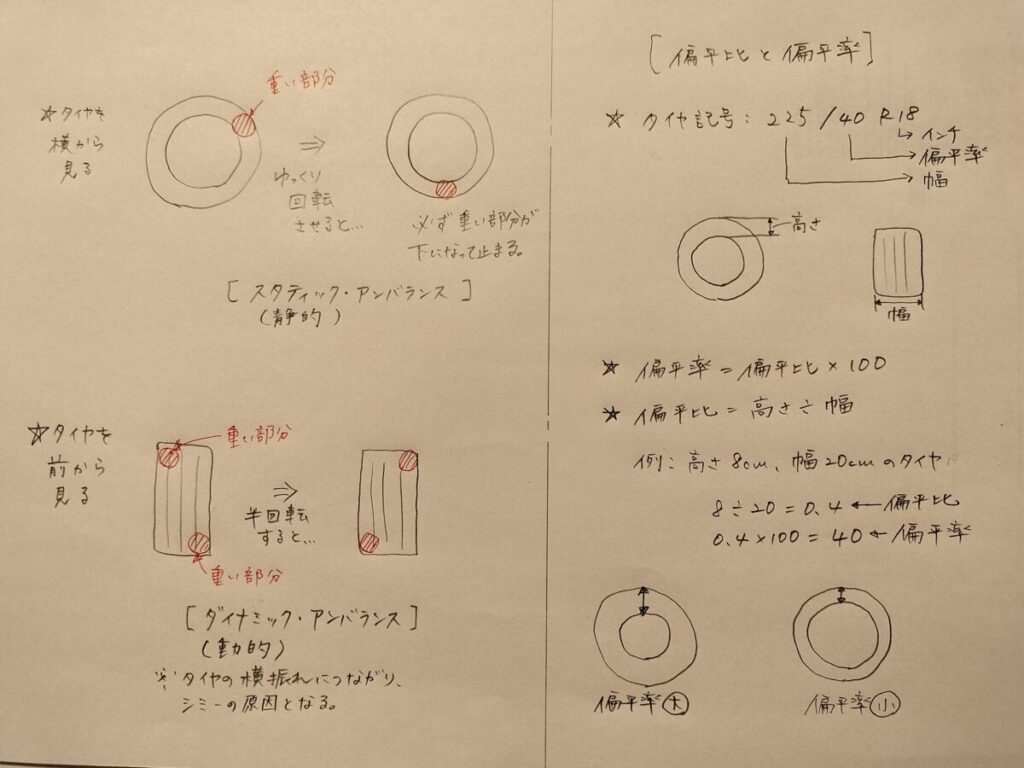 ☆タイヤを
横から
見る
重い部分
⇒
ゆっくり
回転
させると…
必ず重い部分が
下になって止まる。
[スタティック・アンバランス]
(静的)
☆タイヤを
前から
見る
重い部分
⇒
半回転
すると…
重い部分
[ダイナミック・アンバランス]
(動的)
※タイヤの横振れにつながり、
シミーの原因となる。
[偏平比と偏平率]
☆ タイヤ記号: 225/40 R18
インチ
偏平率
幅
高さ
幅
☆ 偏平率=偏平比×100
☆ 偏平比=高さ÷幅
例:高さ8cm、幅20cmのタイヤ
8÷20=0.4←偏平比
0.4×100=40←偏平率
偏平率大
偏平率小